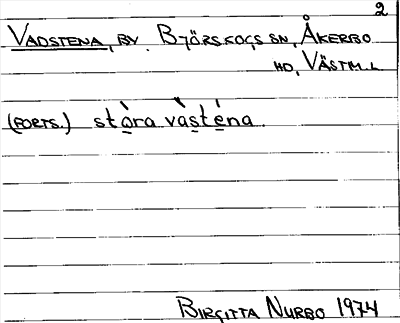 2
VADSTENA, BY. BJÖRSKOGS SN, ÅKERBO
HD, VÄSTM.L
(FORTS.) stò̲ra väs̲té̲na
BIRGITTA NURBO 1974